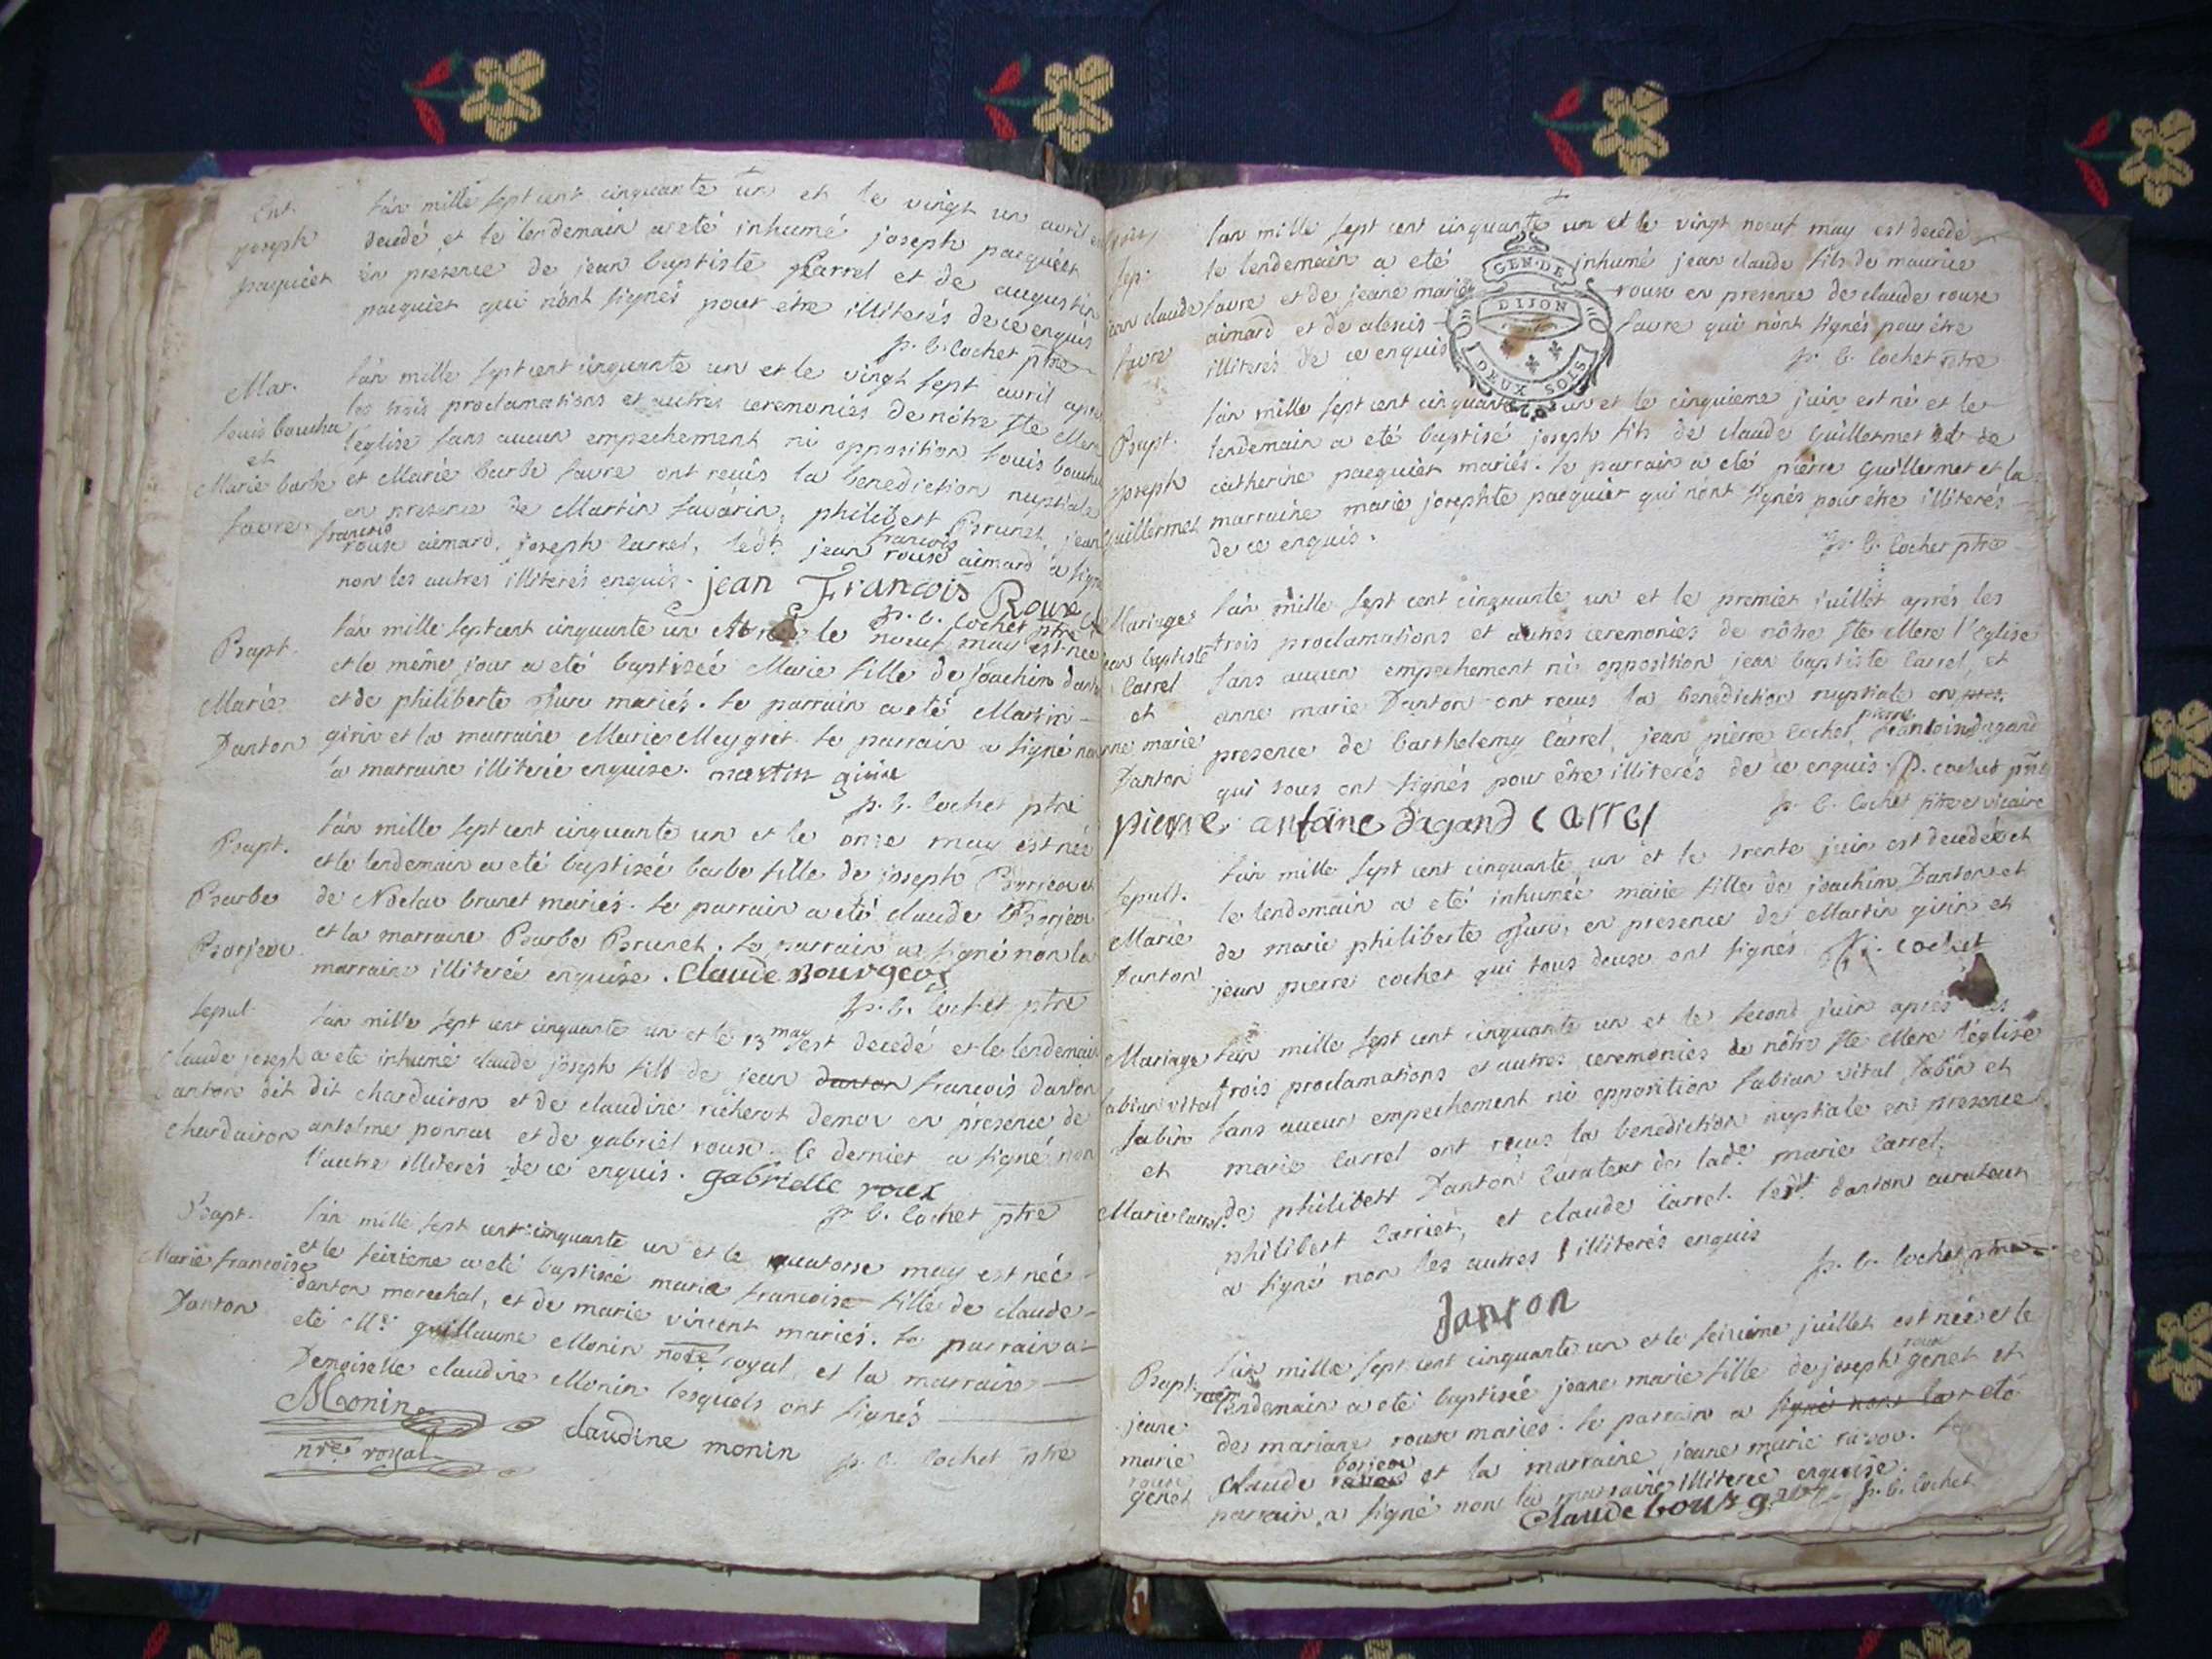 Ent.
joseph
pacquiet
l'an mille sept cent cinquante un et le vingt un avril est
decedé et le lendemain a eté inhumé joseph pacquiet
en présence de jean baptiste Carrel et de augustin
pacquiet qui n'ont signés pour étre illiterés de ce enquis
p. b. Cochet ptre
Mar.
louis bouchu
et
Marie barbe
favre
l'an mille sept cent cinquante un et le vingt sept avril apres
les trois proclamations et autres ceremonies de nôtre Ste Mere
l'eglise sans aucun empechement ni opposition louis bouchu
et Marie barbe favre ont reçus la benediction nuptiale
en presence de Martin savarin, philibert Brunet, jean
francois
roux aimard, joseph Carrel, ledt. jean francois roux aimard a signé
non les autres illiterés enquis. jean François Roux
p. b. Cochet ptre
Bapt.
Marie
Danton
l'an mille sept cent cinquante un et le noeuf may est née
et le même jour a eté baptiseé Marie fille de joachim danton
et de philiberte mariés. le parrain a eté Martin
girin et la marraine Marie Meygret le parrain a signé non
la marraine illiterée enquise. martin girin
p. b. Cochet ptre
Bapt.
Barbe
Borjeou
l'an mille sept cent cinquante un et le onze may est née
et le lendemain a eté baptiseé barbe fille de joseph Borjeou et
de brunet mariés. le parrain a eté claude Borjeou
et la marraine Barbe Brunet. le parrain a signé non la
marraine illiterée enquise. Claude Bourgeos
p. b. Cochet ptre
Sepul.
Claude joseph
danton dit
charduiron
l'an mille sept cent cinquante un et le 13 may est decedé et le lendemain
a eté inhumé claude joseph fils de jean danton francois danton
dit charduiron et de claudine richerot en présence de
antelme ponnau et de gabriel roux. le dernier a signé non
l'autre illiterés de ce enquis. gabrielle roux
p. b. Cochet ptre
Bapt.
Marie francoise
Danton
l'an mille sept cent cinquante un et le quatorse may est née
et le seizieme a eté baptiseé marie francoise fille de claude
danton marechal, et de marie vincent mariés. le parrain a
eté Mr. guillaume Monin notre royal et la marraine
Demoiselle claudine Monin lesquels ont signés
Monin
nre. royal
claudine monin
p. b. Cochet ptre
Sep:
jean claude
favre
l'an mille sept cent cinquante un et le vingt noeuf may est decedé
le lendemain a eté inhumé jean claude fils de maurice
favre et de jeane marie roux en presence de claude roux
aimard et de alexis favre qui n'ont signés pour étre
illiterés de ce enquis
GEN. DE
DIJON
DEUX SOLS
p. b. Cochet ptre
Bapt.
joseph
Guillermet
l'an mille sept cent cinquante un et le cinquieme juin est né et le
lendemain a eté baptisé joseph fils de claude Guillermet et de
catherine pacquiet mariés. le parrain a eté pierre Guillermet et la
marraine marie josephte pacquier qui n'ont signés pour étre illiterés
de ce enquis.
p. b. Cochet ptre
Mariage
jean baptiste
Carrel
et
anne marie
Danton
l'an mille sept cent cinquante un et le premier juillet aprés les
trois proclamations et autres ceremonies de nôtre Ste Mere l'église
sans aucun empechement ni opposition jean baptiste Carrel, et
anne marie Danton ont reçus la benediction nuptiale en pres.
presence de barthelemy Carrel, jean pierre Cochet, pierre antoine dagand
qui tous ont signés pour être illiterés de ce enquis. P. cochet
p. b. Cochet ptre et vicaire
pierre antoine dagand carrel
Sepult.
Marie
Danton
l'an mille sept cent cinquante un et le trente juin est decedée et
le lendemain a eté inhumée marie fille de joachim Danton et
de marie philiberte en presence de Martin girin et
jean pierre cochet qui tous deux ont signés. cochet
Mariage
fabian vital
fabin
et
Marie Carrel
l'an mille sept cent cinquante un et le second juin aprés les
trois proclamations et autres ceremonies de nôtre Ste Mere l'eglise
sans aucun empechement ni opposition fabian vital fabin et
marie Carrel ont reçus la benediction nuptiale en presence
de philibert Danton curateur de lade. marie Carrel,
philibert Carriet, et claude Carrel. ledt. danton curateur
a signé non les autres illiterés enquis
p. b. Cochet ptre
danton
Bapt.
jeane
marie
roux
genet
l'an mille sept cent cinquante un et le seizieme juillet est née et le
lendemain a eté baptisée jeane marie fille de joseph roux genet et
de mariane roux mariés. le parrain a signé non la eté
claude borjeou et la marraine jeane marie ravou. le
parrain a signé non la marraine illiterée enquise.
Claude bourg p. b. Cochet